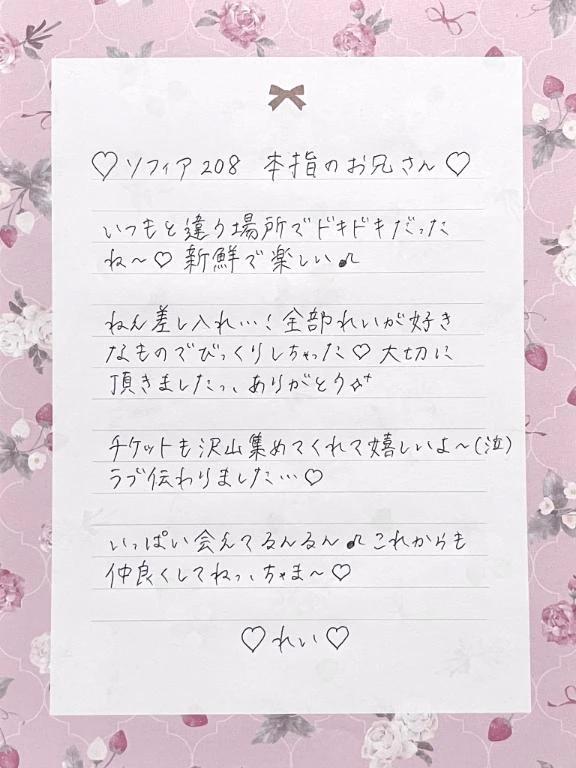 ♡ソフィア208 本指のお兄さん♡
いつもと違う場所でドキドキだった
ね〜♡新鮮で楽しい♪
ねん差し入れ…！全部れいが好き
なものでびっくりしちゃった♡大切に
頂きましたっ、ありがとう☆⁺
チケットも沢山集めてくれて嬉しいよ〜(泣)
ラブ伝わりました…♡
いっぱい会えてるんるん♪これからも
仲良くしてねっ、ちゃま〜♡
♡れい♡